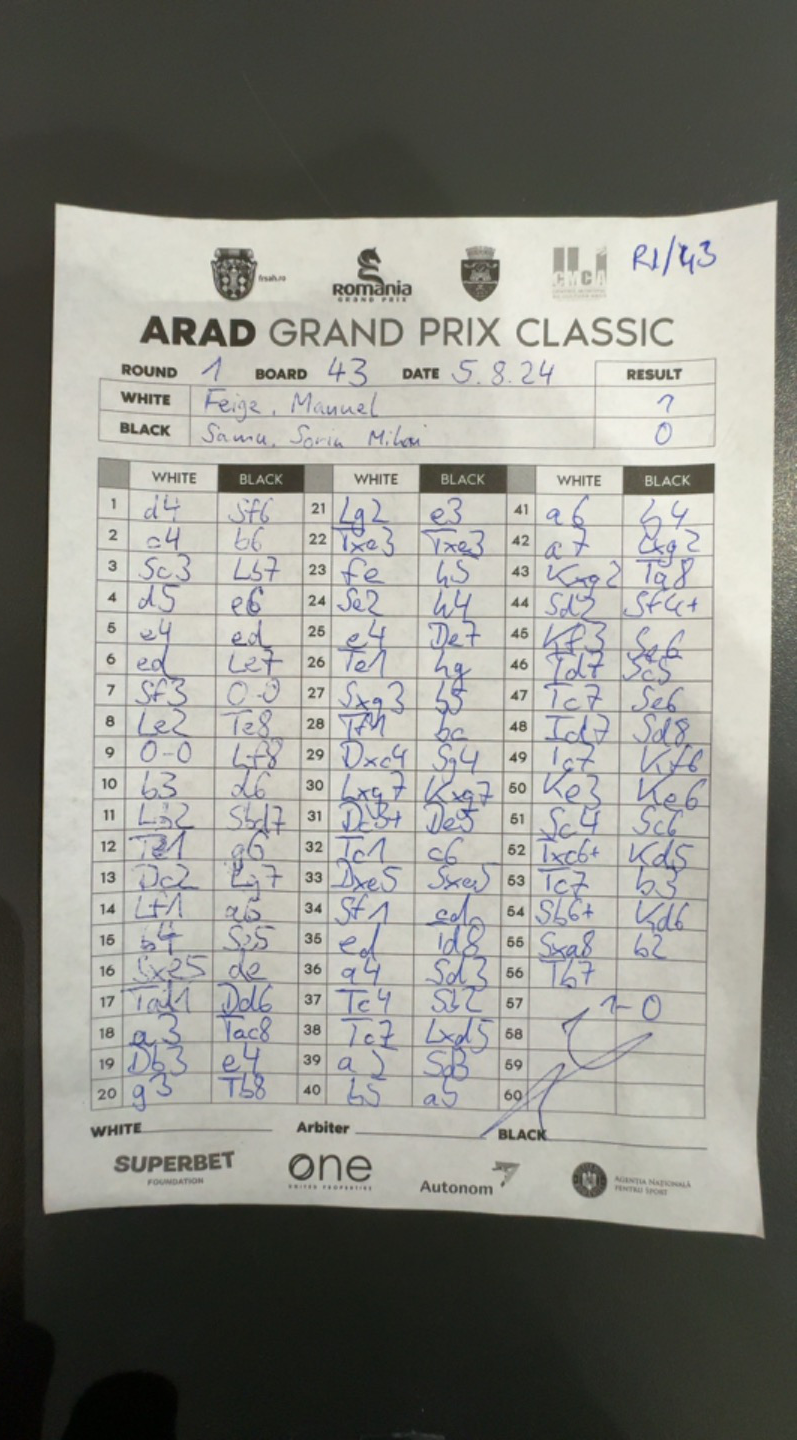 R1/43
frsah.ro
ROMANIA
GRAND PRIX
CMCA
ARAD GRAND PRIX CLASSIC
ROUND 1 BOARD 43 DATE 5.8.24 RESULT
WHITE Feige, Manuel 1
BLACK Sorin 0
WHITE BLACK WHITE BLACK WHITE BLACK
1 d4 Sf6 21 Lg2 e3 41 a6 h4
2 c4 b6 22 Txe3 Txe3 42 a7 Lxg2
3 Sc3 Lb7 23 fe h5 43 Kxg2 Ta8
4 d5 e6 24 Se2 h4 44 Sd2 Sf4+
5 e4 ed 25 e4 De7 45 Kf3 Se6
6 ed Le7 26 Te1 hg 46 Td7 Sc5
7 Sf3 0-0 27 Sxg3 b5 47 Tc7 Se6
8 Le2 Te8 28 Tf1 bc 48 Td7 Sd8
9 0-0 Lf8 29 Dxc4 Sg4 49 Tc7 Kf6
10 b3 d6 30 Lxg7 Kxg7 50 Ke3 Ke6
11 Lb2 Sbd7 31 Dc3+ De5 51 Sc4 Sc6
12 Te1 g6 32 Tc1 c6 52 Txc6+ Kd5
13 Dc2 Lg7 33 Dxe5 Sxe5 53 Tc7 b3
14 Lf1 a6 34 Sf1 cd 54 Sb6+ Kd6
15 b4 Se5 35 ed Td8 55 Sxa8 b2
16 Sxe5 de 36 a4 Sd3 56 Tb7
17 Tad1 Dd6 37 Tc4 Sb2 57 1-0
18 a3 Tac8 38 Tc7 Lxd5 58
19 Db3 e4 39 Sd3 59
20 g3 Tb8 40 b5 a5 60
WHITE Arbiter BLACK
SUPERBET
FOUNDATION
one
UNITED PROPERTIES
Autonom
AGENȚIA NAȚIONALĂ
PENTRU SPORT